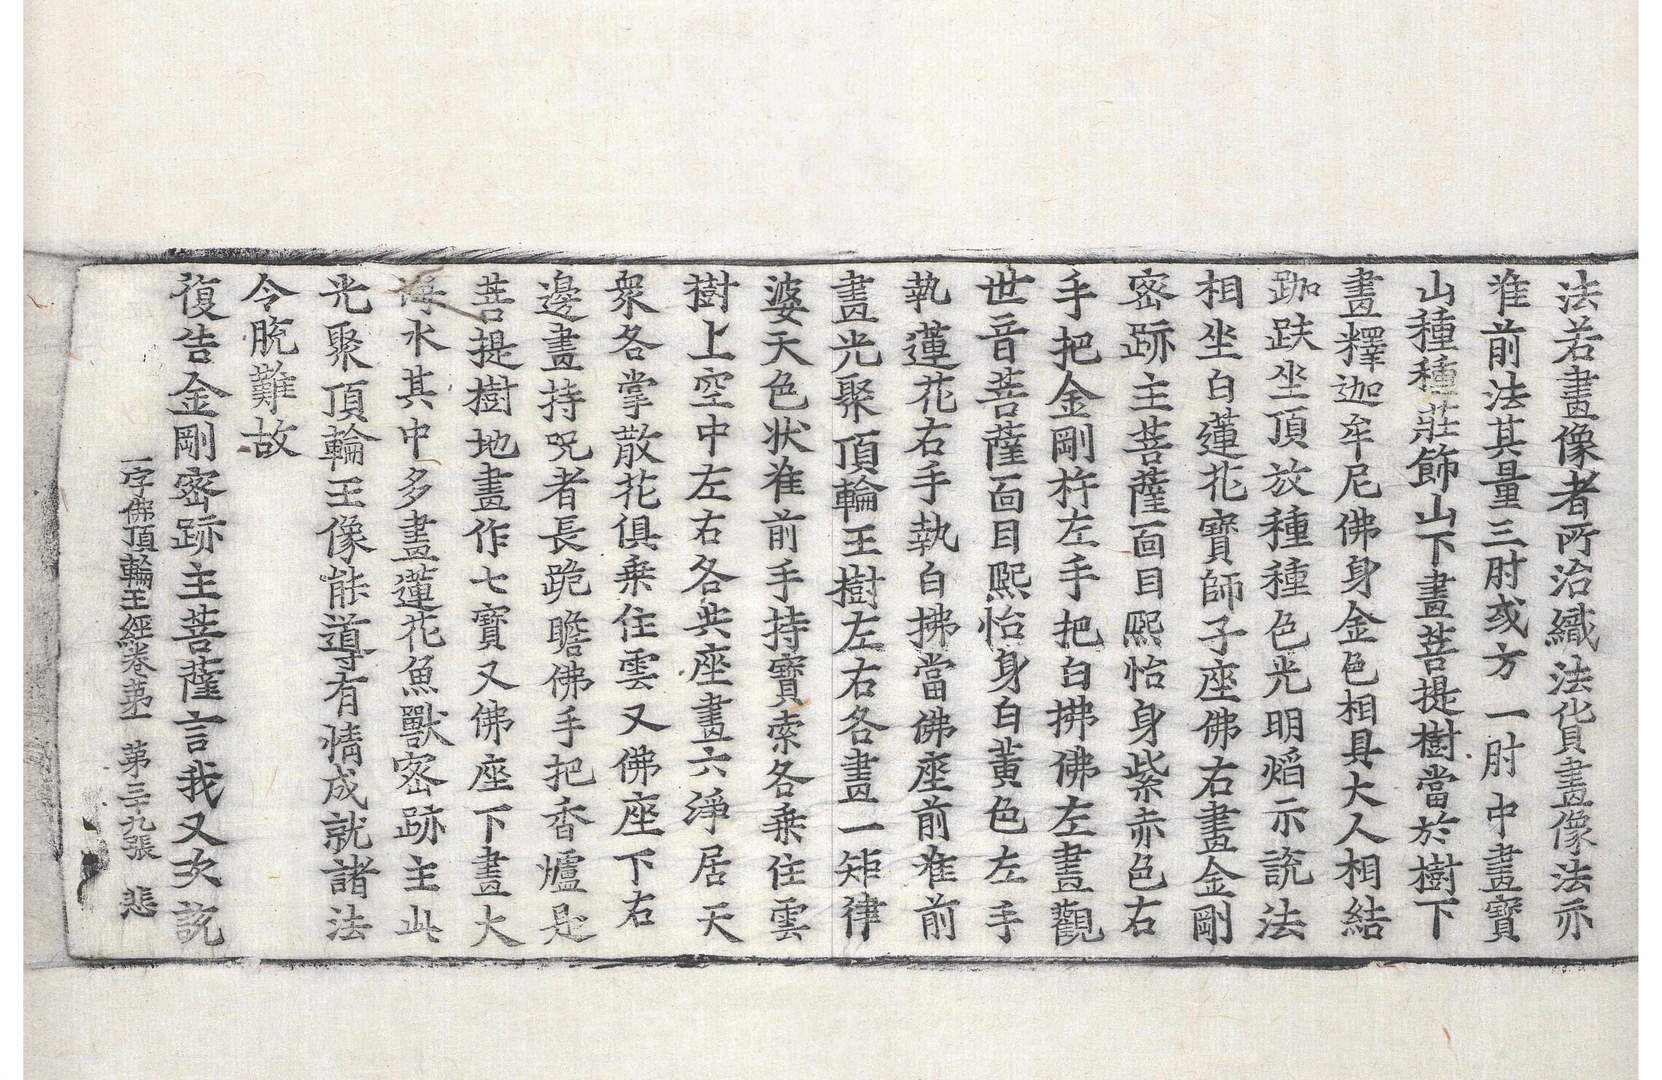 法若畫像者所治織法貨畫像法亦
准前法其量三肘或方一肘中畫寶
山種種莊飾山下畫菩提樹當於樹下
畫釋迦牟尼佛身金色相具大人相結
跏趺坐頂放種種色光明焰示說法
相坐白蓮花寶師子座佛右畫金剛
密跡主菩薩面目熙怡身紫赤色右
手把金剛杵左手把白拂佛左畫觀
世音菩薩面目熙怡身白黃色左手
執蓮花右手執白拂當佛座前准前
畫光聚頂輪王樹左右各畫一矩律
婆天色狀准前手持寶索各乘住雲
樹上空中左右各共座畫六淨居天
眾各掌散花俱乘住雲又佛座下右
邊畫持呪者長跪瞻佛手把香爐是
菩提樹地畫作七寶又佛座下畫大
海水其中多畫蓮花魚獸密跡主此
光聚頂輪王像能導有情成就諸法
令脫難故
復告金剛密跡主菩薩言我又次說
一字佛頂輪王經卷第一 第三九張 悲